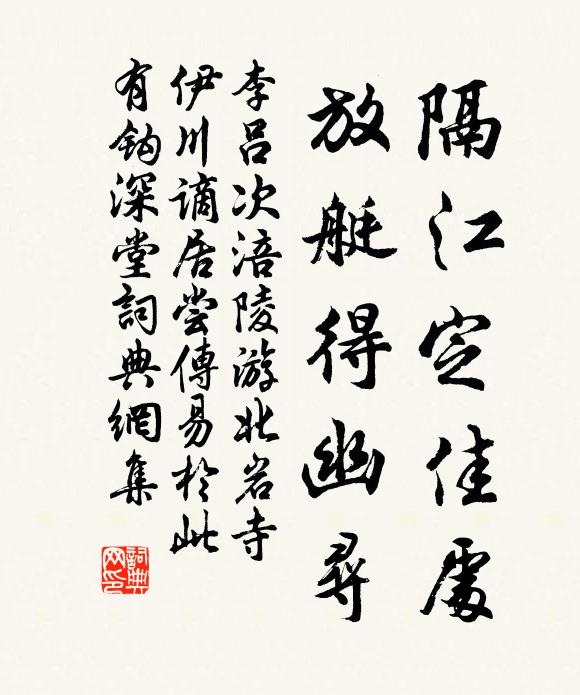 隔江定佳處
放艇得幽尋
李呂次涪陵游北岩寺
伊川謫居嘗傳易於此
有鈎深堂詞典網集
詞典网印